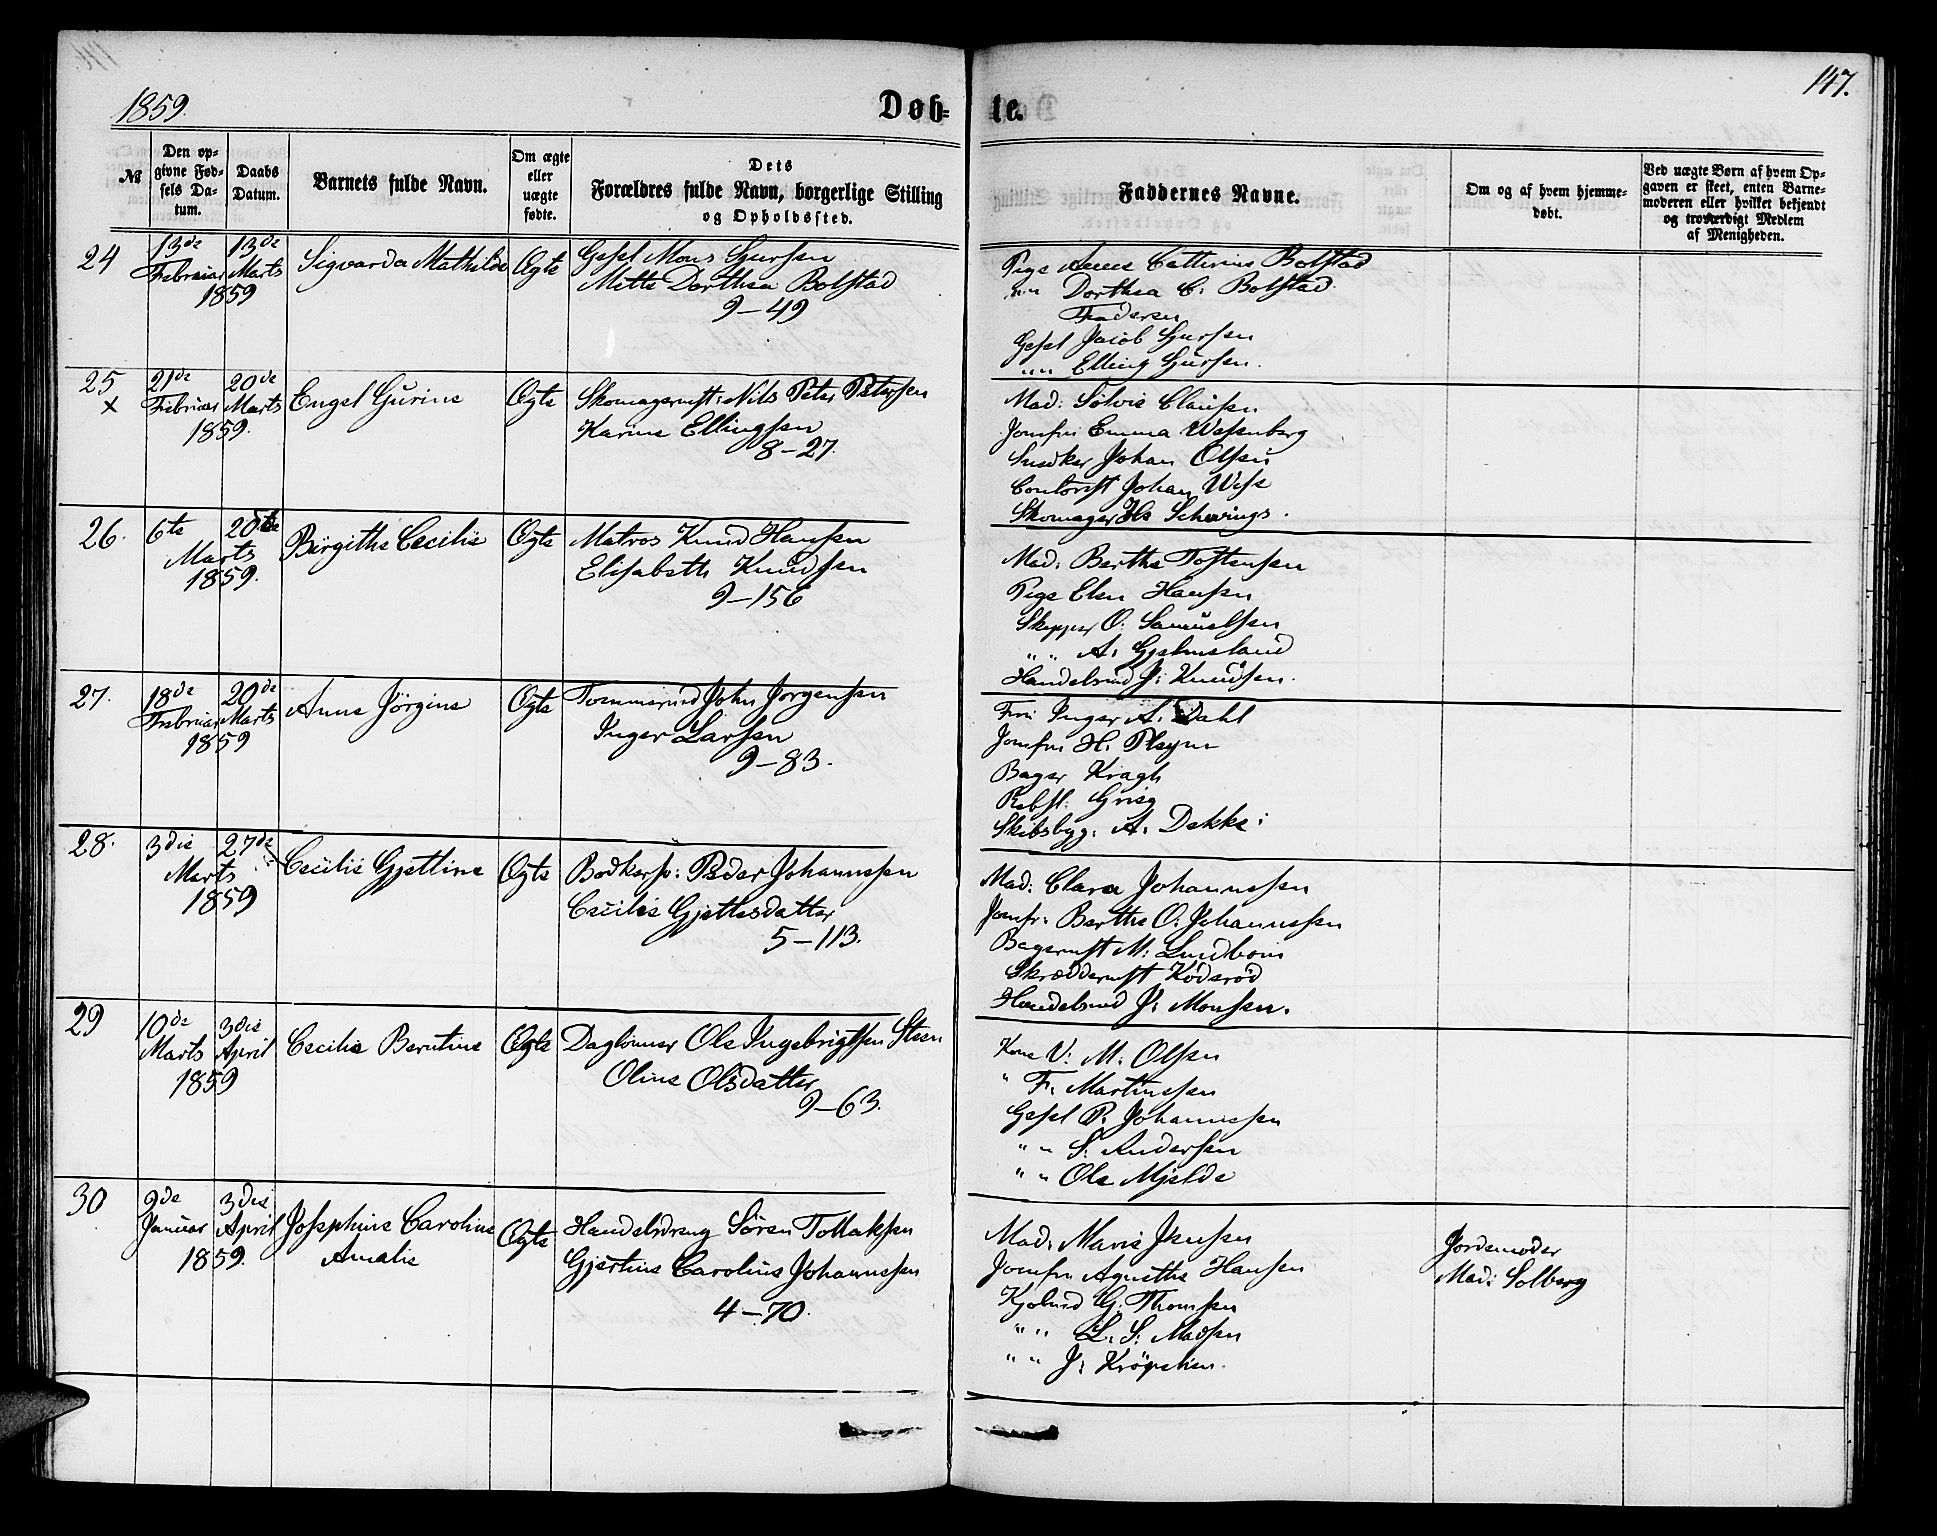 1859.
Døb-
te.
147.
№
Den op-
givne Fød-
sels Da-
tum.
Daabs
Datum.
Barnets fulde Navn.
Om ægte
eller
uægte
fødte.
Dets
Forældres fulde Navn, borgerlige Stilling
og Opholdssted.
Faddernes Navne.
Om og af hvem hjemme-
døbt.
Ved uægte Børn af hvem Op-
gaven er skeet, enten Barne-
moderen eller hvilket bekjendt
og troværdigt Medlem
af Menigheden.
24
13de
Februar
1859
13de
Marts
Sigvarda Mathilde
Ægte
Gesel Mons Gursen
Mette Dorthea Bolstad
9–49
Pige Anne Cathrine Bolstad
„ „ Dorthea C. Bolstad
Gesel Jacob Gursen
„ „ Elling Gursen.
25
×
21de
Februar
1859.
20de
Marts
Engel Gurine
Ægte
Skomagermst: Nils Peter Petersen
Karine Ellingsen
8–27.
Mad: Sølvie Clausen
Jomfru Emma Wesenberg
Snedker Johan Olsen
Contorist Johan Wese
Skomager Schevings.
26.
6te
Marts
1859.
20de
Birgithe Cecilie
Ægte
Matros Knud Hansen
Elisabeth Knudsen
9–156
Mad: Berthe Tostensen
Pige Elen Hansen
Skipper O: Samuelsen
„ „ A: Gjelmsland
Handelsmd J: Knudsen.
27.
18de
Februar
1859
20de
Marts
Anne Jörgine
Ægte
Tømmermd John Jørgensen
Inger Larsen
9–83.
Fru Inger A. Dahl
Jomfru H: Pleym
Bager Kragh
Rebsl: Grieg
Skibsbyg: A. Dekke:
28.
3die
Marts
1859
27de
Cecilie Gjettine
Ægte
Bødkersv: Peder Johannesen
Cecilie Gjettesdatter
5–113.
Mad: Clara Johannesen
Jomfr: Berthe O: Johannesen
Bagermst M: Lundbom
Skræddermst Köderöd
Handelsmd J: Monsen.
29
10de
Marts
1859
3die
April
Cecilie Berntine
Ægte
Daglønner Ole Ingebrigtsen Steen
Oline Olsdatter
9–63.
Kone V: M: Olsen
„ F: Martinesen
Gesel P: Johannesen
„ „ S: Andersen
„ „ Ole Mjelde
30
9de
Januar
1859.
3die
April
Josephine Caroline
Amalie
Ægte
Handelsdreng Sören Tollaksen
Gjertine Caroline Johannesen
4–70.
Mad: Marie Jensen
Jomfru Agnethe Hansen
Kjøbmd G: Thomsen
„ „ L: S: Madsen
„ „ J: Krøpelien.
Jordemoder
Mad: Solberg